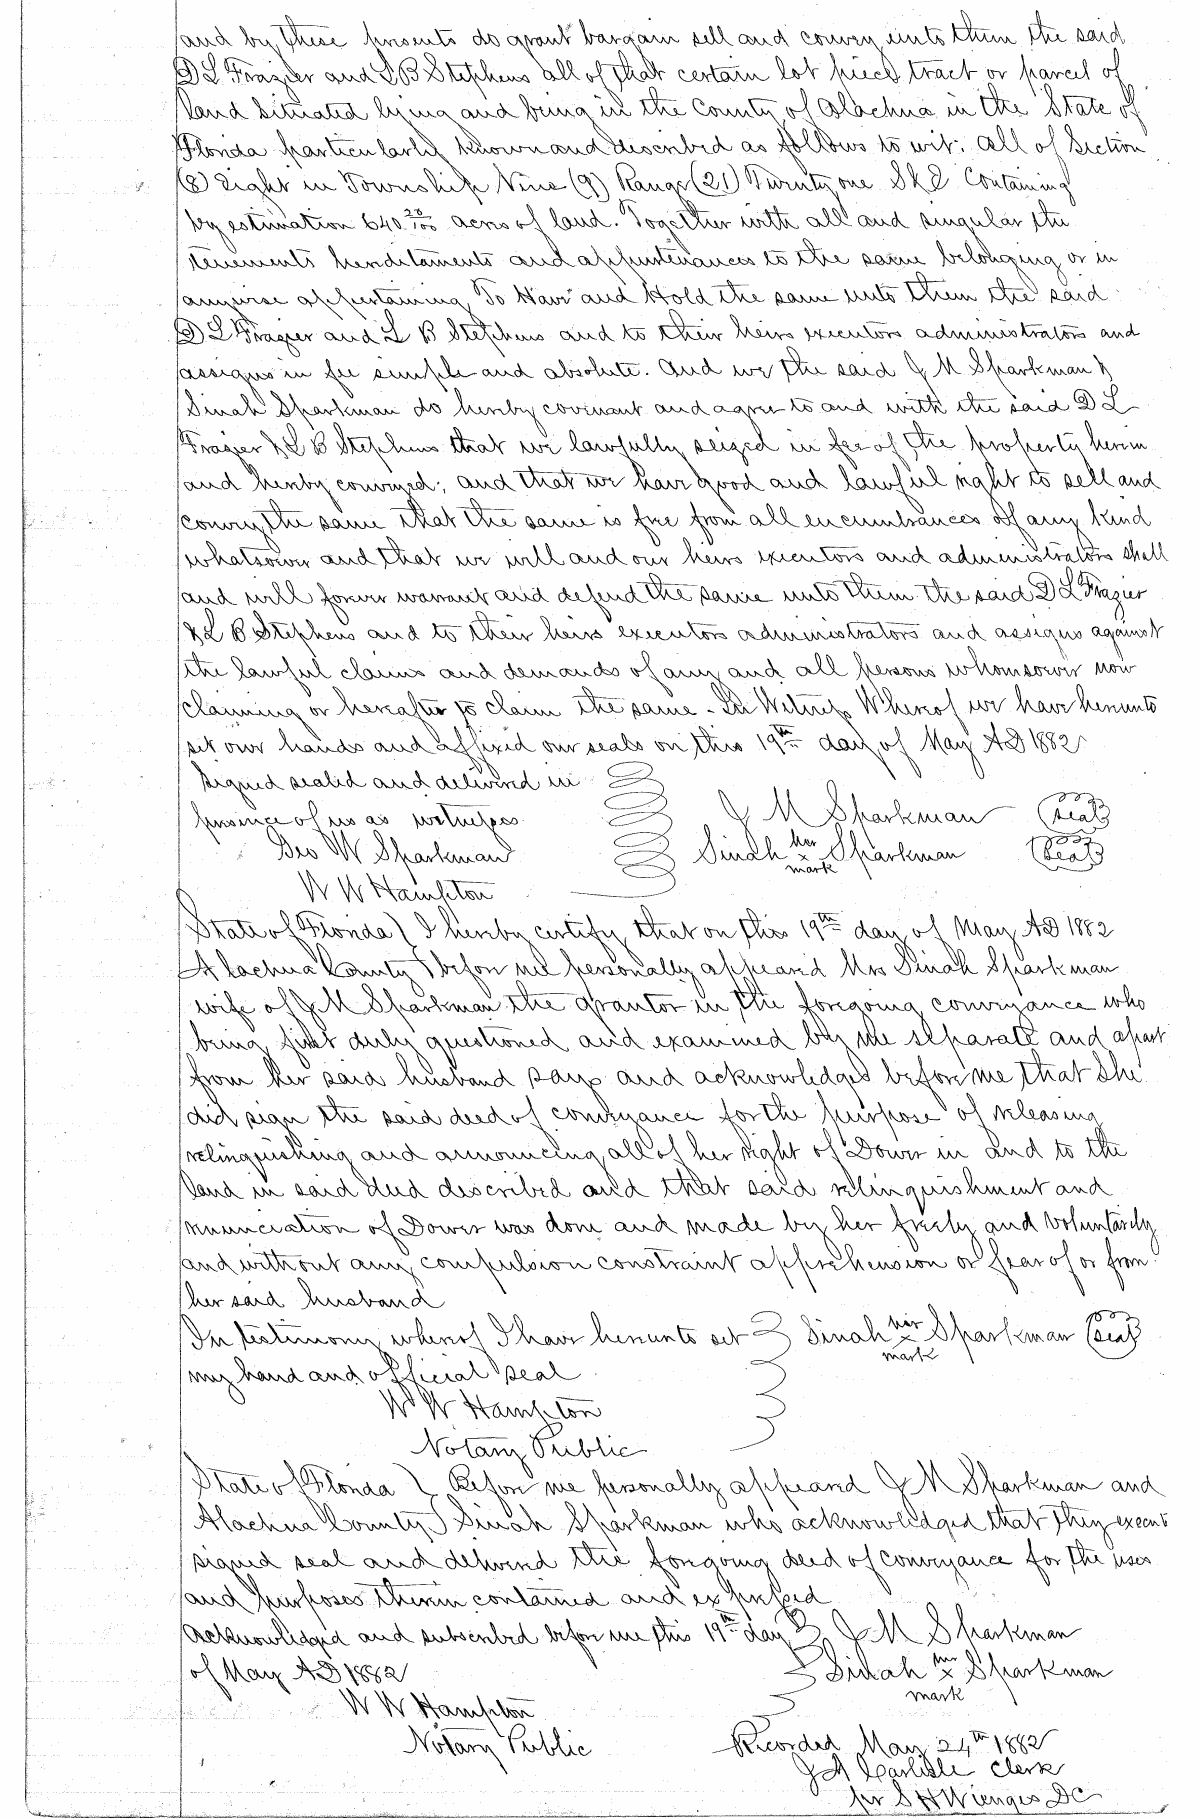 and by these presents do grant bargain sell and convey unto them the said
D L Frazier and L B Stephens all of that certain lot piece tract or parcel of
land situated lying and being in the County of Alachua in the State of
Florida particularly known and described as follows to wit: All of Section
(8) Eight in Township Nine (9) Range (21) Twenty one S & E Containing
by estimation 640 20/100 acres of land. Together with all and singular the
tenements hereditaments and appurtenances to the same belonging or in
anywise appertaining To Have and Hold the same unto them the said
D L Frazier and L B Stephens and to their heirs executors administrators and
assigns in fee simple and absolute. And we the said J M Sparkman &
Sinah Sparkman do hereby covenant and agree to and with the said D L
Frazier & L B Stephens that we lawfully seized in fee of the property herein
and hereby conveyed; and that we have good and lawful right to sell and
convey the same that the same is free from all encumbrances of any kind
whatsoever and that we will and our heirs executors and administrators shall
and will forever warrant and defend the same unto them the said D L Frazier
& L B Stephens and to their heirs executors administrators and assigns against
the lawful claims and demands of any and all persons whomsoever now
claiming or hereafter to claim the same - In Witness Whereof we have hereunto
set our hands and affixed our seals on this 19th day of May AD 1882
Signed sealed and delivered in
presence of us as witnesses J M Sparkman (seal)
Geo W Sparkman Sinah her x mark Sparkman (seal)
W W Hampton
State of Florida } I hereby certify that on this 19th day of May AD 1882
Alachua County } before me personally appeared Mrs Sinah Sparkman
wife of J M Sparkman the grantor in the foregoing conveyance who
being first duly questioned and examined by me separate and apart
from her said husband says and acknowledges before me that she
did sign the said deed of conveyance for the purpose of releasing
relinquishing and announcing all of her right of Dower in and to the
land in said deed described and that said relinquishment and
renunciation of Dower was done and made by her freely and voluntarily
and without any compulsion constraint apprehension or fear of or from
her said husband
In testimony whereof I have hereunto set } Sinah her x mark Sparkman (seal)
my hand and official seal
W W Hampton
Notary Public
State of Florida } Before me personally appeared J M Sparkman and
Alachua County } Sinah Sparkman who acknowledged that they execut
signed seal and delivered the foregoing deed of conveyance for the uses
and purposes therein contained and expressed
Acknowledged and subscribed before me this 19th day } J M Sparkman
of May AD 1882 } Sinah her x mark Sparkman
W W Hampton
Notary Public Recorded May 24th 1882
J A Carlisle Clerk
per S H Wienges DC